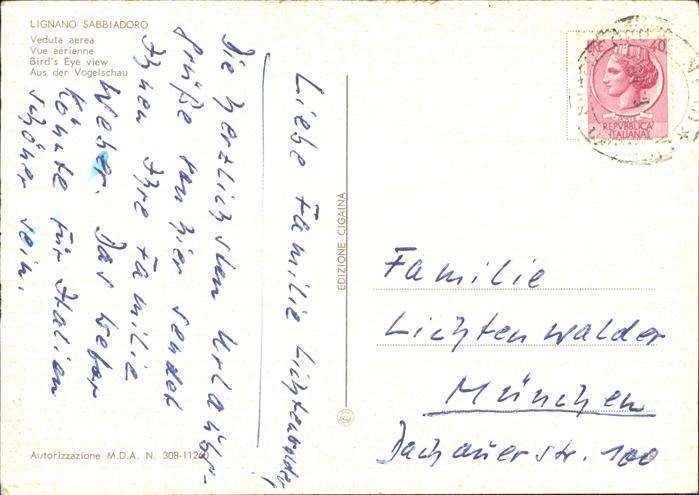 LIGNANO SABBIADORO
Veduta aerea
Vue aérienne
Bird's Eye view
Aus der Vogelschau
Liebe Familie Lichtenwalder,
Die herzlichsten Urlaubs-
grüße von hier sendet
Ihnen Ihre Familie
Weber. Das Wetter
könnte für Italien
schöner sein.
EDIZIONE CIGAINA
40
REPVBBLICA
ITALIANA
Familie
Lichtenwalder
München
Dachauerstr. 100
Autorizzazione M.D.A. N. 308-11260